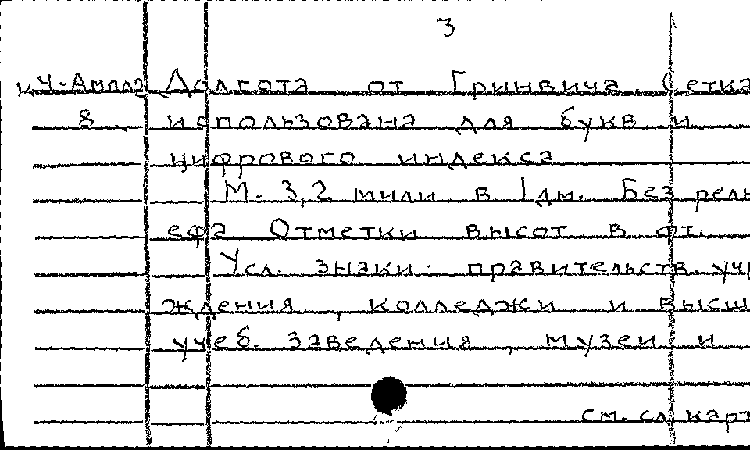 3
Долгота от Гринвича. Сетка
8 использована для букв и
цифрового индекса
М. 3,2 мили в 1дм. Без рель
ефа Отметки высот в фт.
Усл. знаки: правительств. учр
ждения, колледжи и высш
учеб. заведения, музеи и
см. сл карт